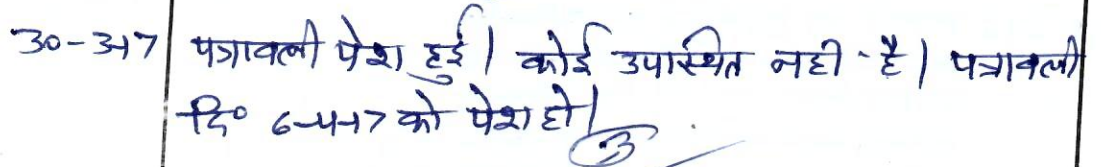 30-3-17 पत्रावली पेश हुई। कोई उपस्थित नही है। पत्रावली
दि० 6-4-17 को पेश हो।